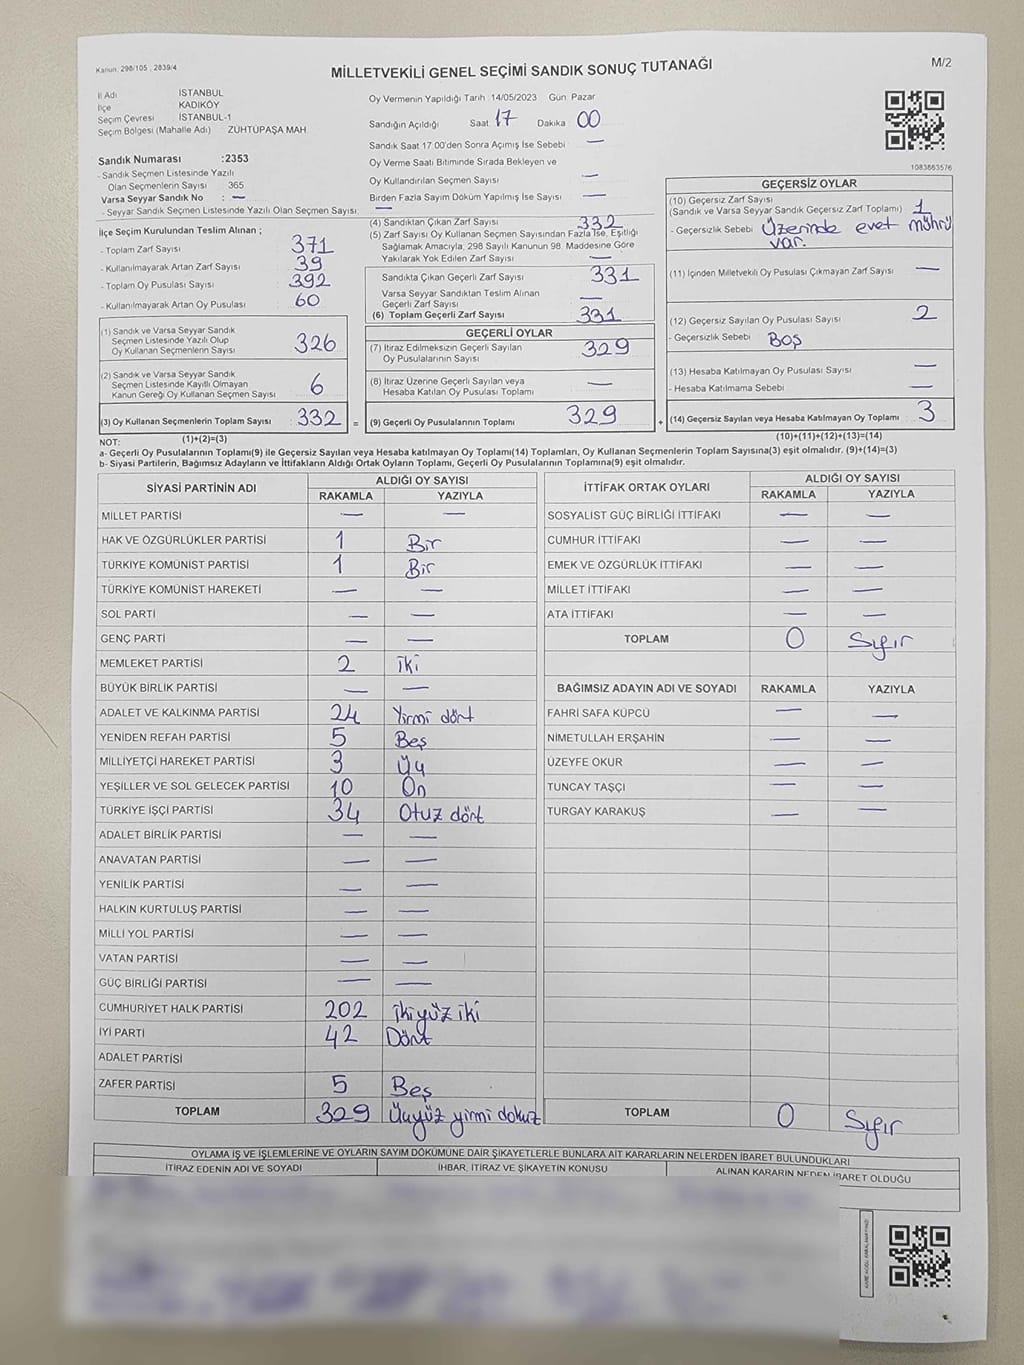 Kanun, 298/105 , 2839/4
MİLLETVEKİLİ GENEL SEÇİMİ SANDIK SONUÇ TUTANAĞI
M/2
İl Adı İSTANBUL
İlçe KADIKÖY
Seçim Çevresi İSTANBUL-1
Seçim Bölgesi (Mahalle Adı) ZÜHTÜPAŞA MAH.
Sandık Numarası :2353
- Sandık Seçmen Listesinde Yazılı
Olan Seçmenlerin Sayısı 365
Varsa Seyyar Sandık No : —
- Seyyar Sandık Seçmen Listesinde Yazılı Olan Seçmen Sayısı: —
İlçe Seçim Kurulundan Teslim Alınan ;
- Toplam Zarf Sayısı 371
- Kullanılmayarak Artan Zarf Sayısı 39
- Toplam Oy Pusulası Sayısı 392
- Kullanılmayarak Artan Oy Pusulası 60
(1) Sandık ve Varsa Seyyar Sandık
Seçmen Listesinde Yazılı Olup
Oy Kullanan Seçmenlerin Sayısı 326
(2) Sandık ve Varsa Seyyar Sandık
Seçmen Listesinde Kayıtlı Olmayan
Kanun Gereği Oy Kullanan Seçmen Sayısı 6
(3) Oy Kullanan Seçmenlerin Toplam Sayısı 332 =
Oy Vermenin Yapıldığı Tarih :14/05/2023 Gün: Pazar
Sandığın Açıldığı Saat 17 Dakika 00
Sandık Saat 17.00'den Sonra Açımış İse Sebebi —
Oy Verme Saati Bitiminde Sırada Bekleyen ve
Oy Kullandırılan Seçmen Sayısı —
Birden Fazla Sayım Döküm Yapılmış İse Sayısı —
(4) Sandıktan Çıkan Zarf Sayısı 332
(5) Zarf Sayısı Oy Kullanan Seçmen Sayısından Fazla İse, Eşitliği
Sağlamak Amacıyla, 298 Sayılı Kanunun 98. Maddesine Göre
Yakılarak Yok Edilen Zarf Sayısı —
Sandıkta Çıkan Geçerli Zarf Sayısı 331
Varsa Seyyar Sandıktan Teslim Alınan
Geçerli Zarf Sayısı —
(6) Toplam Geçerli Zarf Sayısı 331
GEÇERLİ OYLAR
(7) İtiraz Edilmeksizin Geçerli Sayılan
Oy Pusulalarının Sayısı 329
(8) İtiraz Üzerine Geçerli Sayılan veya
Hesaba Katılan Oy Pusulaları Toplamı —
(9) Geçerli Oy Pusulalarının Toplamı 329 +
1083863576
GEÇERSİZ OYLAR
(10) Geçersiz Zarf Sayısı
(Sandık ve Varsa Seyyar Sandık Geçersiz Zarf Toplamı) 1
- Geçersizlik Sebebi Üzerinde evet mührü
var.
(11) İçinden Milletvekili Oy Pusulası Çıkmayan Zarf Sayısı —
(12) Geçersiz Sayılan Oy Pusulası Sayısı 2
- Geçersizlik Sebebi Boş
(13) Hesaba Katılmayan Oy Pusulası Sayısı —
- Hesaba Katılmama Sebebi —
(14) Geçersiz Sayılan veya Hesaba Katılmayan Oy Toplamı 3
NOT: (1)+(2)=(3) (10)+(11)+(12)+(13)=(14)
a- Geçerli Oy Pusulalarının Toplamı(9) ile Geçersiz Sayılan veya Hesaba katılmayan Oy Toplamı(14) Toplamları, Oy Kullanan Seçmenlerin Toplam Sayısına(3) eşit olmalıdır. (9)+(14)=(3)
b- Siyasi Partilerin, Bağımsız Adayların ve İttifakların Aldığı Ortak Oyların Toplamı, Geçerli Oy Pusulalarının Toplamına(9) eşit olmalıdır.
SİYASİ PARTİNİN ADI ALDIĞI OY SAYISI
RAKAMLA YAZIYLA
MİLLET PARTİSİ — —
HAK VE ÖZGÜRLÜKLER PARTİSİ 1 Bir
TÜRKİYE KOMÜNİST PARTİSİ 1 Bir
TÜRKİYE KOMÜNİST HAREKETİ — —
SOL PARTİ — —
GENÇ PARTİ — —
MEMLEKET PARTİSİ 2 iki
BÜYÜK BİRLİK PARTİSİ — —
ADALET VE KALKINMA PARTİSİ 24 Yirmi dört
YENİDEN REFAH PARTİSİ 5 Beş
MİLLİYETÇİ HAREKET PARTİSİ 3 Üç
YEŞİLLER VE SOL GELECEK PARTİSİ 10 On
TÜRKİYE İŞÇİ PARTİSİ 34 Otuz dört
ADALET BİRLİK PARTİSİ — —
ANAVATAN PARTİSİ — —
YENİLİK PARTİSİ — —
HALKIN KURTULUŞ PARTİSİ — —
MİLLİ YOL PARTİSİ — —
VATAN PARTİSİ — —
GÜÇ BİRLİĞİ PARTİSİ — —
CUMHURİYET HALK PARTİSİ 202 ikiyüz iki
İYİ PARTİ 42 Dört
ADALET PARTİSİ
ZAFER PARTİSİ 5 Beş
TOPLAM 329 Üçyüz yirmi dokuz
İTTİFAK ORTAK OYLARI ALDIĞI OY SAYISI
RAKAMLA YAZIYLA
SOSYALİST GÜÇ BİRLİĞİ İTTİFAKI — —
CUMHUR İTTİFAKI — —
EMEK VE ÖZGÜRLÜK İTTİFAKI — —
MİLLET İTTİFAKI — —
ATA İTTİFAKI — —
TOPLAM 0 Sıfır
BAĞIMSIZ ADAYIN ADI VE SOYADI RAKAMLA YAZIYLA
FAHRİ SAFA KÜPCÜ — —
NİMETULLAH ERŞAHİN — —
ÜZEYFE OKUR — —
TUNCAY TAŞÇI — —
TURGAY KARAKUŞ — —
TOPLAM 0 Sıfır
OYLAMA İŞ VE İŞLEMLERİNE VE OYLARIN SAYIM DÖKÜMÜNE DAİR ŞİKAYETLERLE BUNLARA AİT KARARLARIN NELERDEN İBARET BULUNDUKLARI
İTİRAZ EDENİN ADI VE SOYADI İHBAR, İTİRAZ VE ŞİKAYETİN KONUSU ALINAN KARARIN NEDEN İBARET OLDUĞU